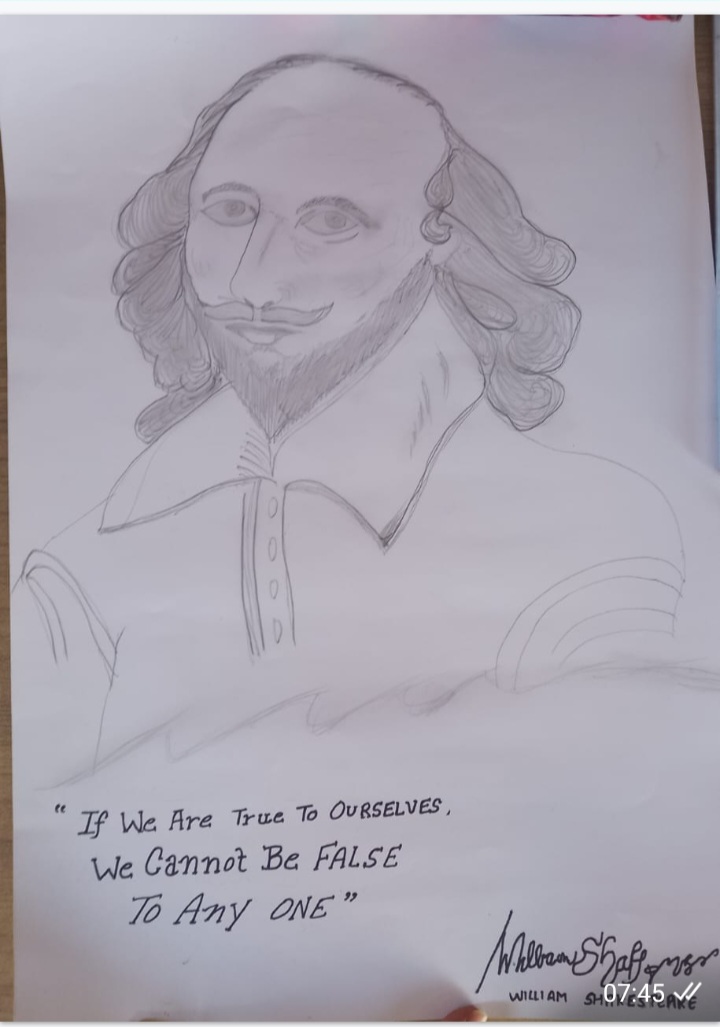 “ If We Are True To OURSELVES,
We Cannot Be FALSE
To Any ONE ”
William
WILLIAM SHAKESPEARE
07:45